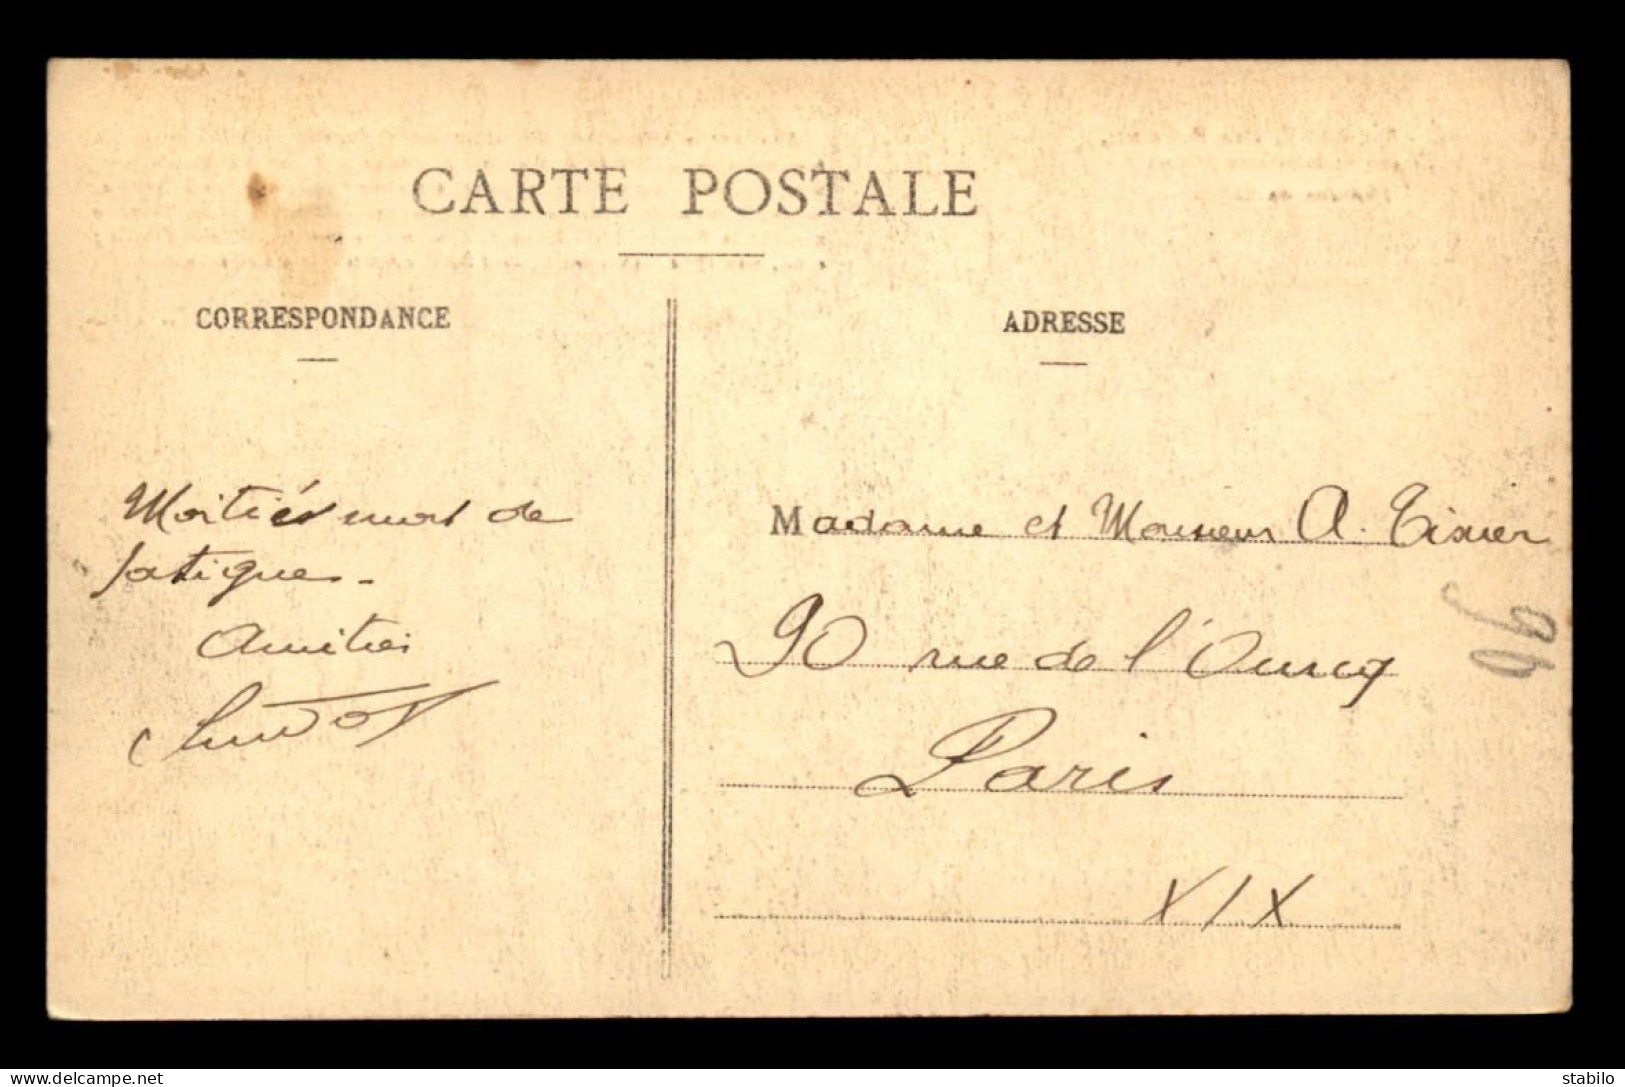 CARTE POSTALE
CORRESPONDANCE
ADRESSE
Moitiés mort de
fatigues -
Amitiés
Madame et Monsieur A. Tixier
90 rue de l'Ourcq
Paris
XIX
www.delcampe.net
stabilo